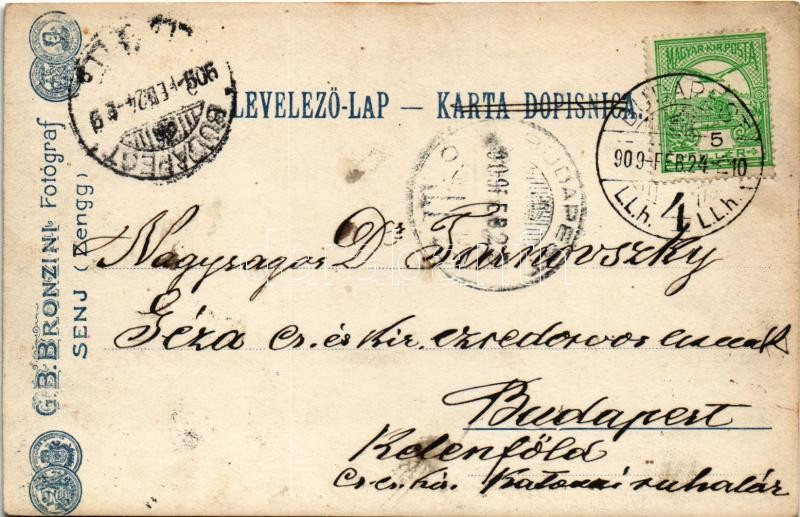 LEVELEZŐ-LAP — KARTA DOPISNICA.
MAGYAR·KIR·POSTA
5
BUDAPEST
909 FEB.24
BUDAPEST
909-FEB.24-10
4
I.I.h. I.I.h.
BUDAPEST
909 FEB 2
G.B. BRONZINI Fotógraf
SENJ (Zengg)
Nagyságos Dr Tarnovszky
Géza cs. és kir. ezredorvos urnak
Budapest
Kelenföld
Cs. és kir. Katonai ruhatár